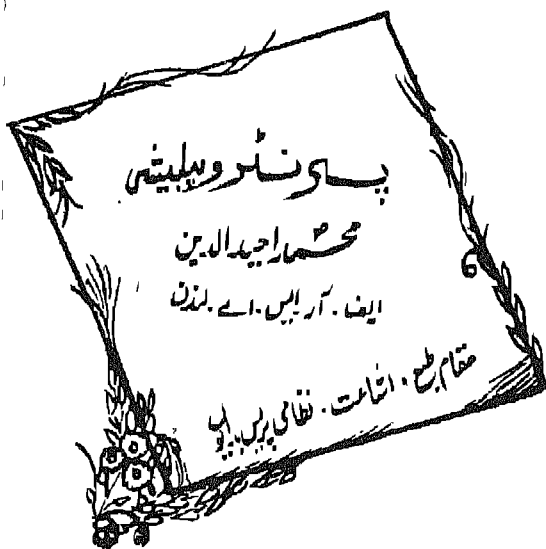 پرنٹر و پبلیشر
محمد احید الدین
ایف . آر ایس . اے . لنڈن
مقام طبع و اشاعت . نظامی پریس بدایوں